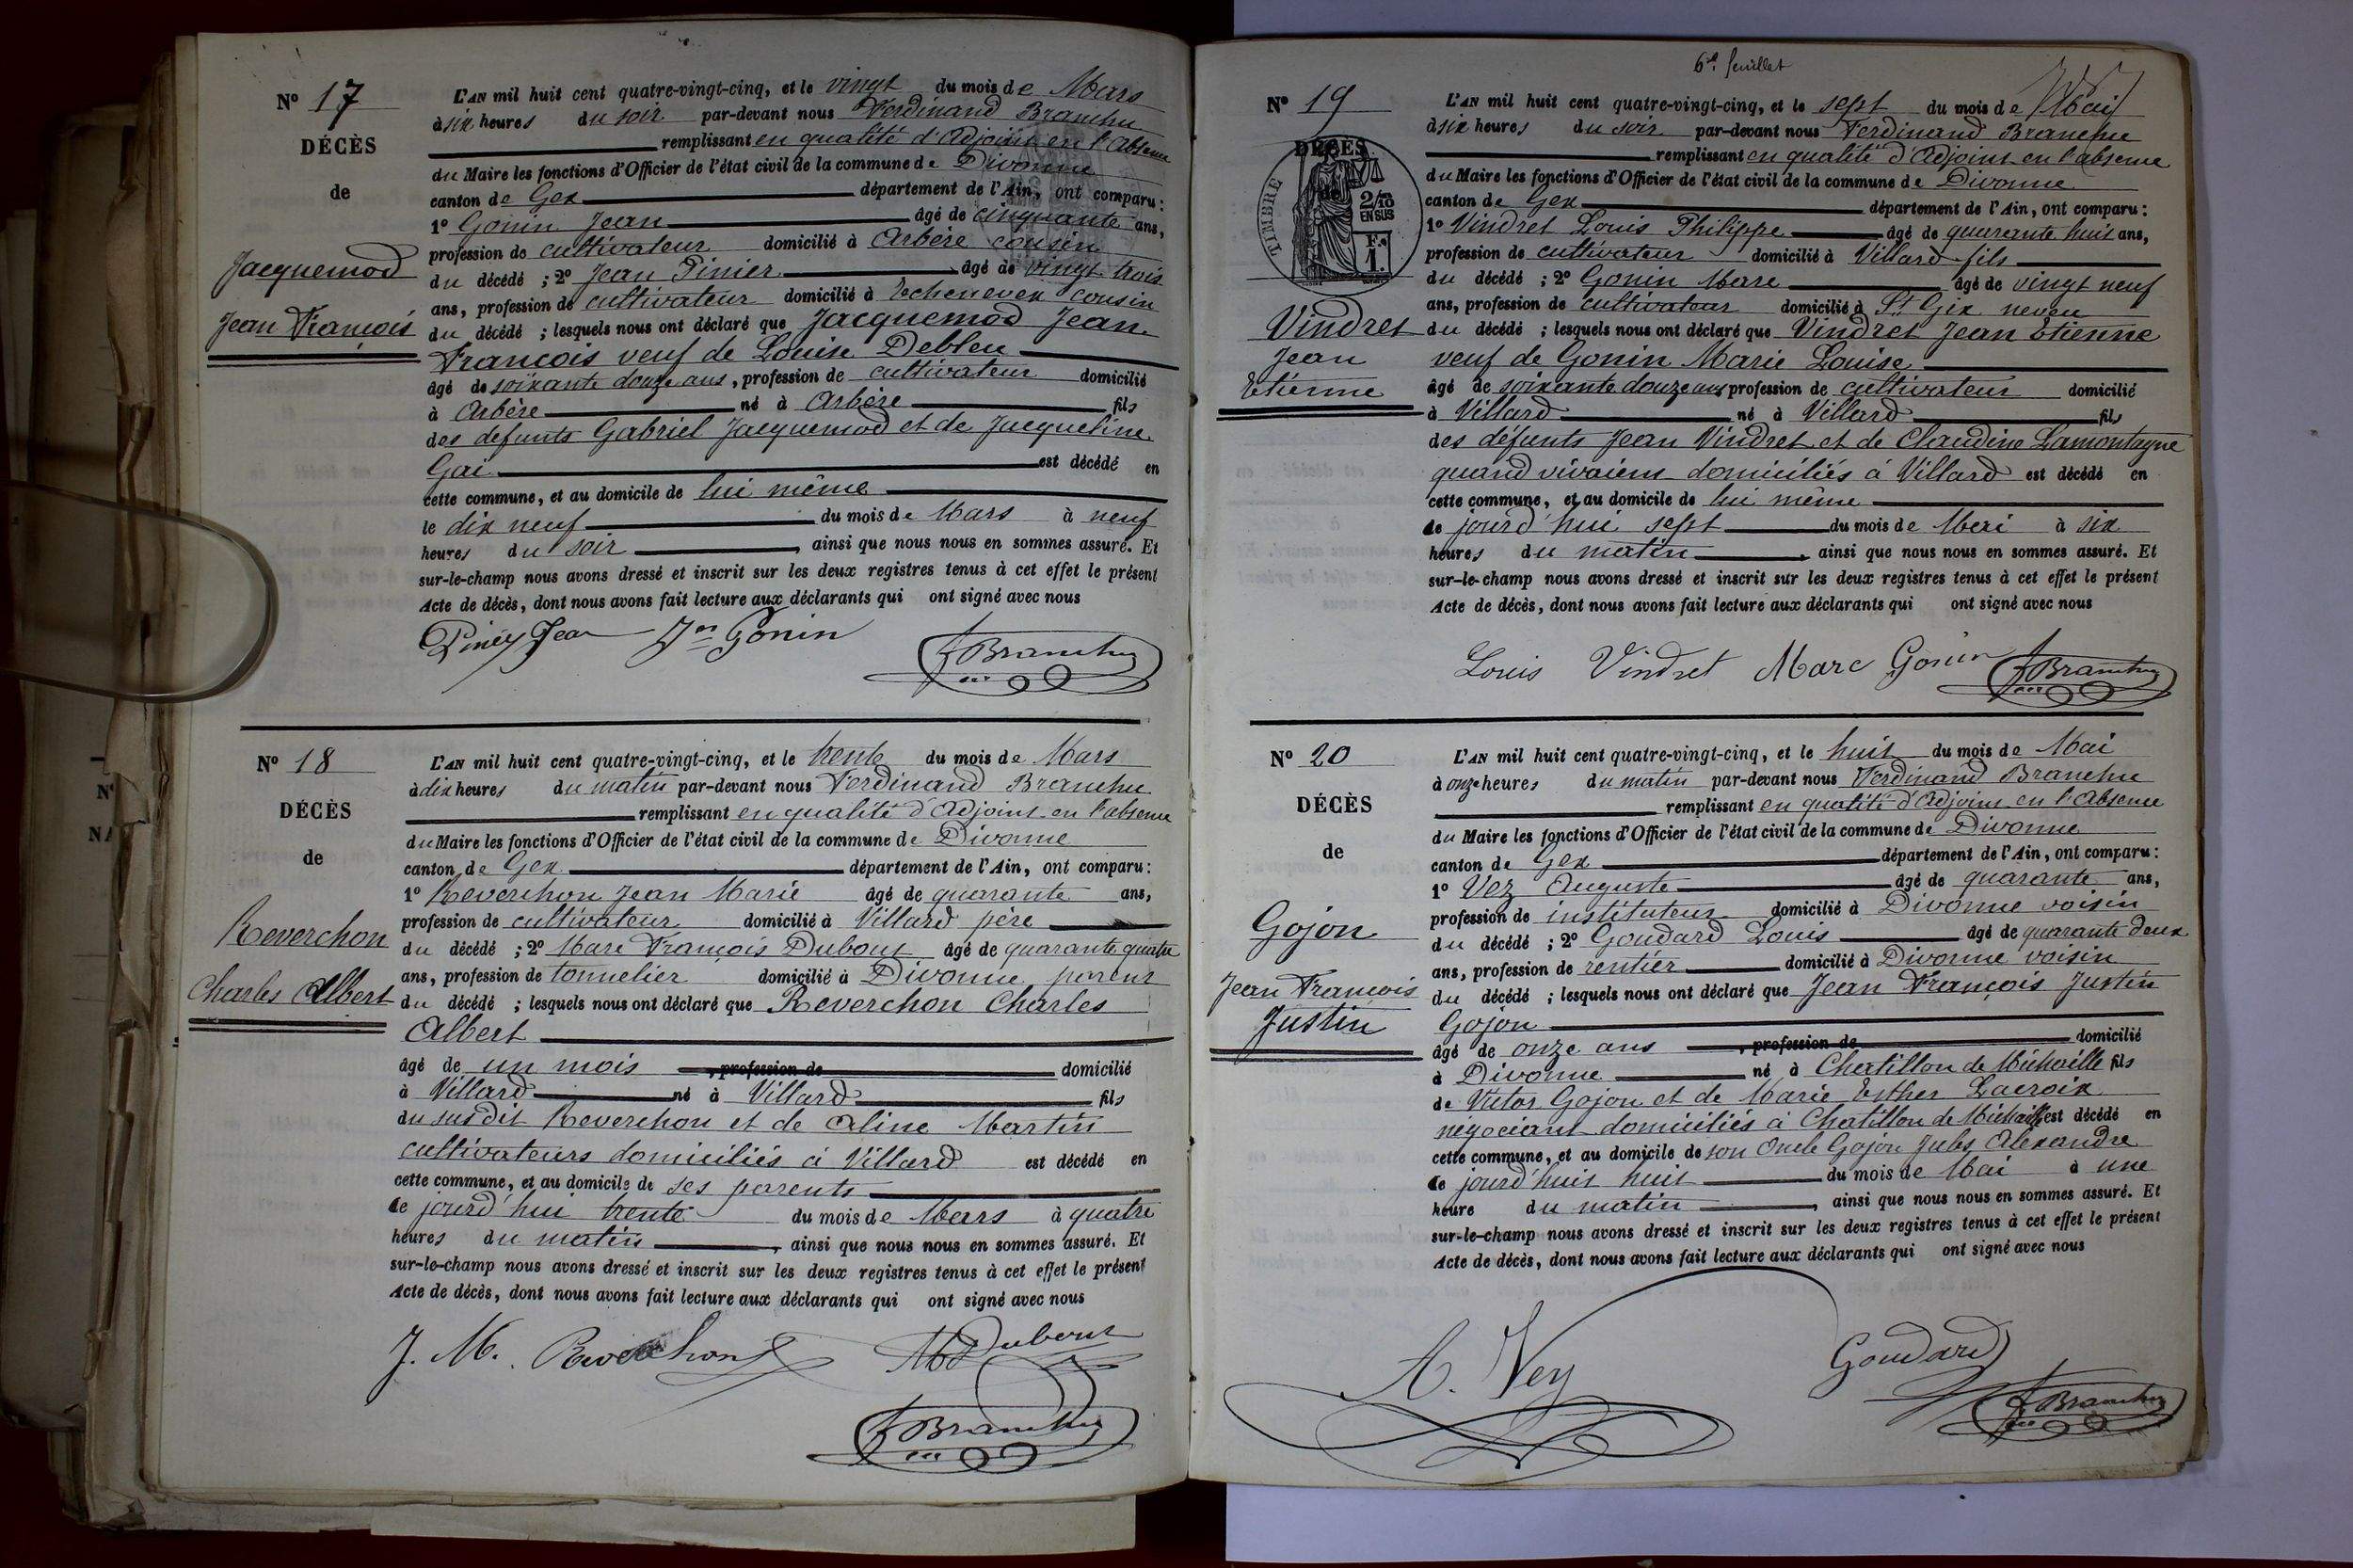 Nº 17
DÉCÈS
de
Jacquemod
Jean François
L'AN mil huit cent quatre-vingt-cinq, et le vingt du mois de Mars
à six heures du soir par-devant nous Ferdinand Branchu
remplissant en qualité d'Adjoint en l'absence
du Maire les fonctions d'Officier de l'état civil de la commune de Divonne
canton de Gex département de l'Ain, ont comparu :
1º Gonin Jean âgé de cinquante ans,
profession de cultivateur domicilié à Arbère cousin
du décédé ; 2º Jean Pinier âgé de vingt trois
ans, profession de cultivateur domicilié à Echenevex cousin
du décédé ; lesquels nous ont déclaré que Jacquemod Jean
François veuf de Louise Debleu
âgé de soixante douze ans, profession de cultivateur domicilié
à Arbère né à Arbère fils
des defunts Gabriel Jacquemod et de Jacqueline
Gai est décédé en
cette commune, et au domicile de lui même
le dix neuf du mois de Mars à neuf
heures du soir, ainsi que nous nous en sommes assuré. Et
sur-le-champ nous avons dressé et inscrit sur les deux registres tenus à cet effet le présent
Acte de décès, dont nous avons fait lecture aux déclarants qui ont signé avec nous
Jean Jn Gonin
Branchu
Nº 18
DÉCÈS
de
Reverchon
Charles Albert
L'AN mil huit cent quatre-vingt-cinq, et le trente du mois de Mars
à dix heures du matin par-devant nous Ferdinand Branchu
remplissant en qualité d'Adjoint en l'absence
du Maire les fonctions d'Officier de l'état civil de la commune de Divonne
canton de Gex département de l'Ain, ont comparu :
1º Reverchon Jean Marie âgé de quarante ans,
profession de cultivateur domicilié à Villard père
du décédé ; 2º Marc François Dubout âgé de quarante quatre
ans, profession de tonnelier domicilié à Divonne parent
du décédé ; lesquels nous ont déclaré que Reverchon Charles
Albert
âgé de un mois, profession de domicilié
à Villard né à Villard fils
du susdit Reverchon et de Aline Martin
cultivateurs domiciliés à Villard est décédé en
cette commune, et au domicile de ses parents
le jourd'hui trente du mois de Mars à quatre
heures du matin, ainsi que nous nous en sommes assuré. Et
sur-le-champ nous avons dressé et inscrit sur les deux registres tenus à cet effet le présent
Acte de décès, dont nous avons fait lecture aux déclarants qui ont signé avec nous
J. M. Reverchon Dubout
Branchu
6e feuillet
Nº 19
DÉCÈS
de
TIMBRE
2/10
EN SUS
1
Vindret
Jean
Etienne
L'AN mil huit cent quatre-vingt-cinq, et le sept du mois de Mai
à six heures du soir par-devant nous Ferdinand Branchu
remplissant en qualité d'Adjoint en l'absence
du Maire les fonctions d'Officier de l'état civil de la commune de Divonne
canton de Gex département de l'Ain, ont comparu :
1º Vindret Louis Philippe âgé de quarante huit ans,
profession de cultivateur domicilié à Villard fils
du décédé ; 2º Gonin Marc âgé de vingt neuf
ans, profession de cultivateur domicilié à St Gix neveu
du décédé ; lesquels nous ont déclaré que Vindret Jean Etienne
veuf de Gonin Marie Louise
âgé de soixante douze ans, profession de cultivateur domicilié
à Villard né à Villard fils
des défunts Jean Vindret et de Claudine Lamontagne
quand vivaient domiciliés à Villard est décédé en
cette commune, et au domicile de lui même
le jourd'hui sept du mois de Mai à six
heures du matin, ainsi que nous nous en sommes assuré. Et
sur-le-champ nous avons dressé et inscrit sur les deux registres tenus à cet effet le présent
Acte de décès, dont nous avons fait lecture aux déclarants qui ont signé avec nous
Louis Vindret Marc Gonin Branchu
Nº 20
DÉCÈS
de
Gojon
Jean François
Justin
L'AN mil huit cent quatre-vingt-cinq, et le huit du mois de Mai
à onze heures du matin par-devant nous Ferdinand Branchu
remplissant en qualité d'Adjoint en l'absence
du Maire les fonctions d'Officier de l'état civil de la commune de Divonne
canton de Gex département de l'Ain, ont comparu :
1º Vez Auguste âgé de quarante ans,
profession de instituteur domicilié à Divonne voisin
du décédé ; 2º Goudard Louis âgé de quarante deux
ans, profession de rentier domicilié à Divonne voisin
du décédé ; lesquels nous ont déclaré que Jean François Justin
Gojon
âgé de onze ans, profession de domicilié
à Divonne né à Chatillon de Michaille fils
de Victor Gojon et de Marie Esther Lacroix
négociant domiciliés à Chatillon de Michaille est décédé en
cette commune, et au domicile de son Oncle Gojon Jules Alexandre
le jourd'huit huit du mois de Mai à une
heure du matin, ainsi que nous nous en sommes assuré. Et
sur-le-champ nous avons dressé et inscrit sur les deux registres tenus à cet effet le présent
Acte de décès, dont nous avons fait lecture aux déclarants qui ont signé avec nous
A. Vez Goudard
Branchu